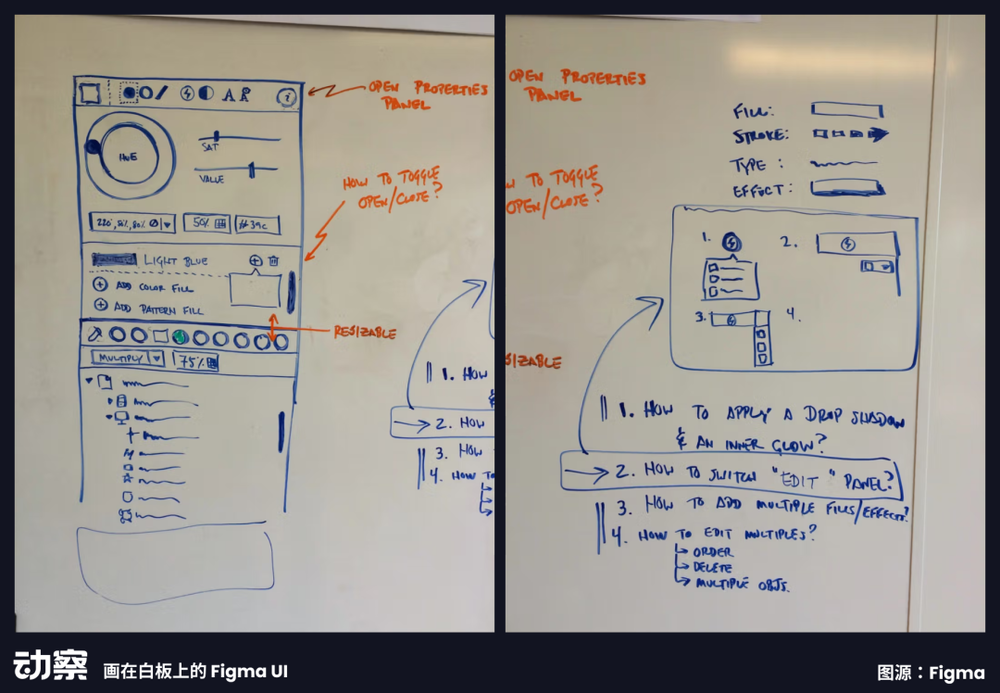 OPEN PROPERTIES
PANEL
HUE
SAT
VALUE
HOW TO TOGGLE
OPEN/CLOSE?
50%
LIGHT BLUE
ADD COLOR FILL
ADD PATTERN FILL
RESIZABLE
MULTIPLY
75%
1. HOW
2. HOW
3. HOW
4. HOW TO
OPEN PROPERTIES
PANEL
W TO TOGGLE
OPEN/CLOSE?
SIZABLE
FILL:
STROKE:
TYPE:
EFFECT:
1.
2.
3.
4.
1. HOW TO APPLY A DROP SHADOW
& AN INNER GLOW?
2. HOW TO SWITCH "EDIT" PANEL?
3. HOW TO ADD MULTIPLE FILLS/EFFECTS?
4. HOW TO EDIT MULTIPLES?
ORDER
DELETE
MULTIPLE OBJS.
动察 画在白板上的 Figma UI
图源：Figma